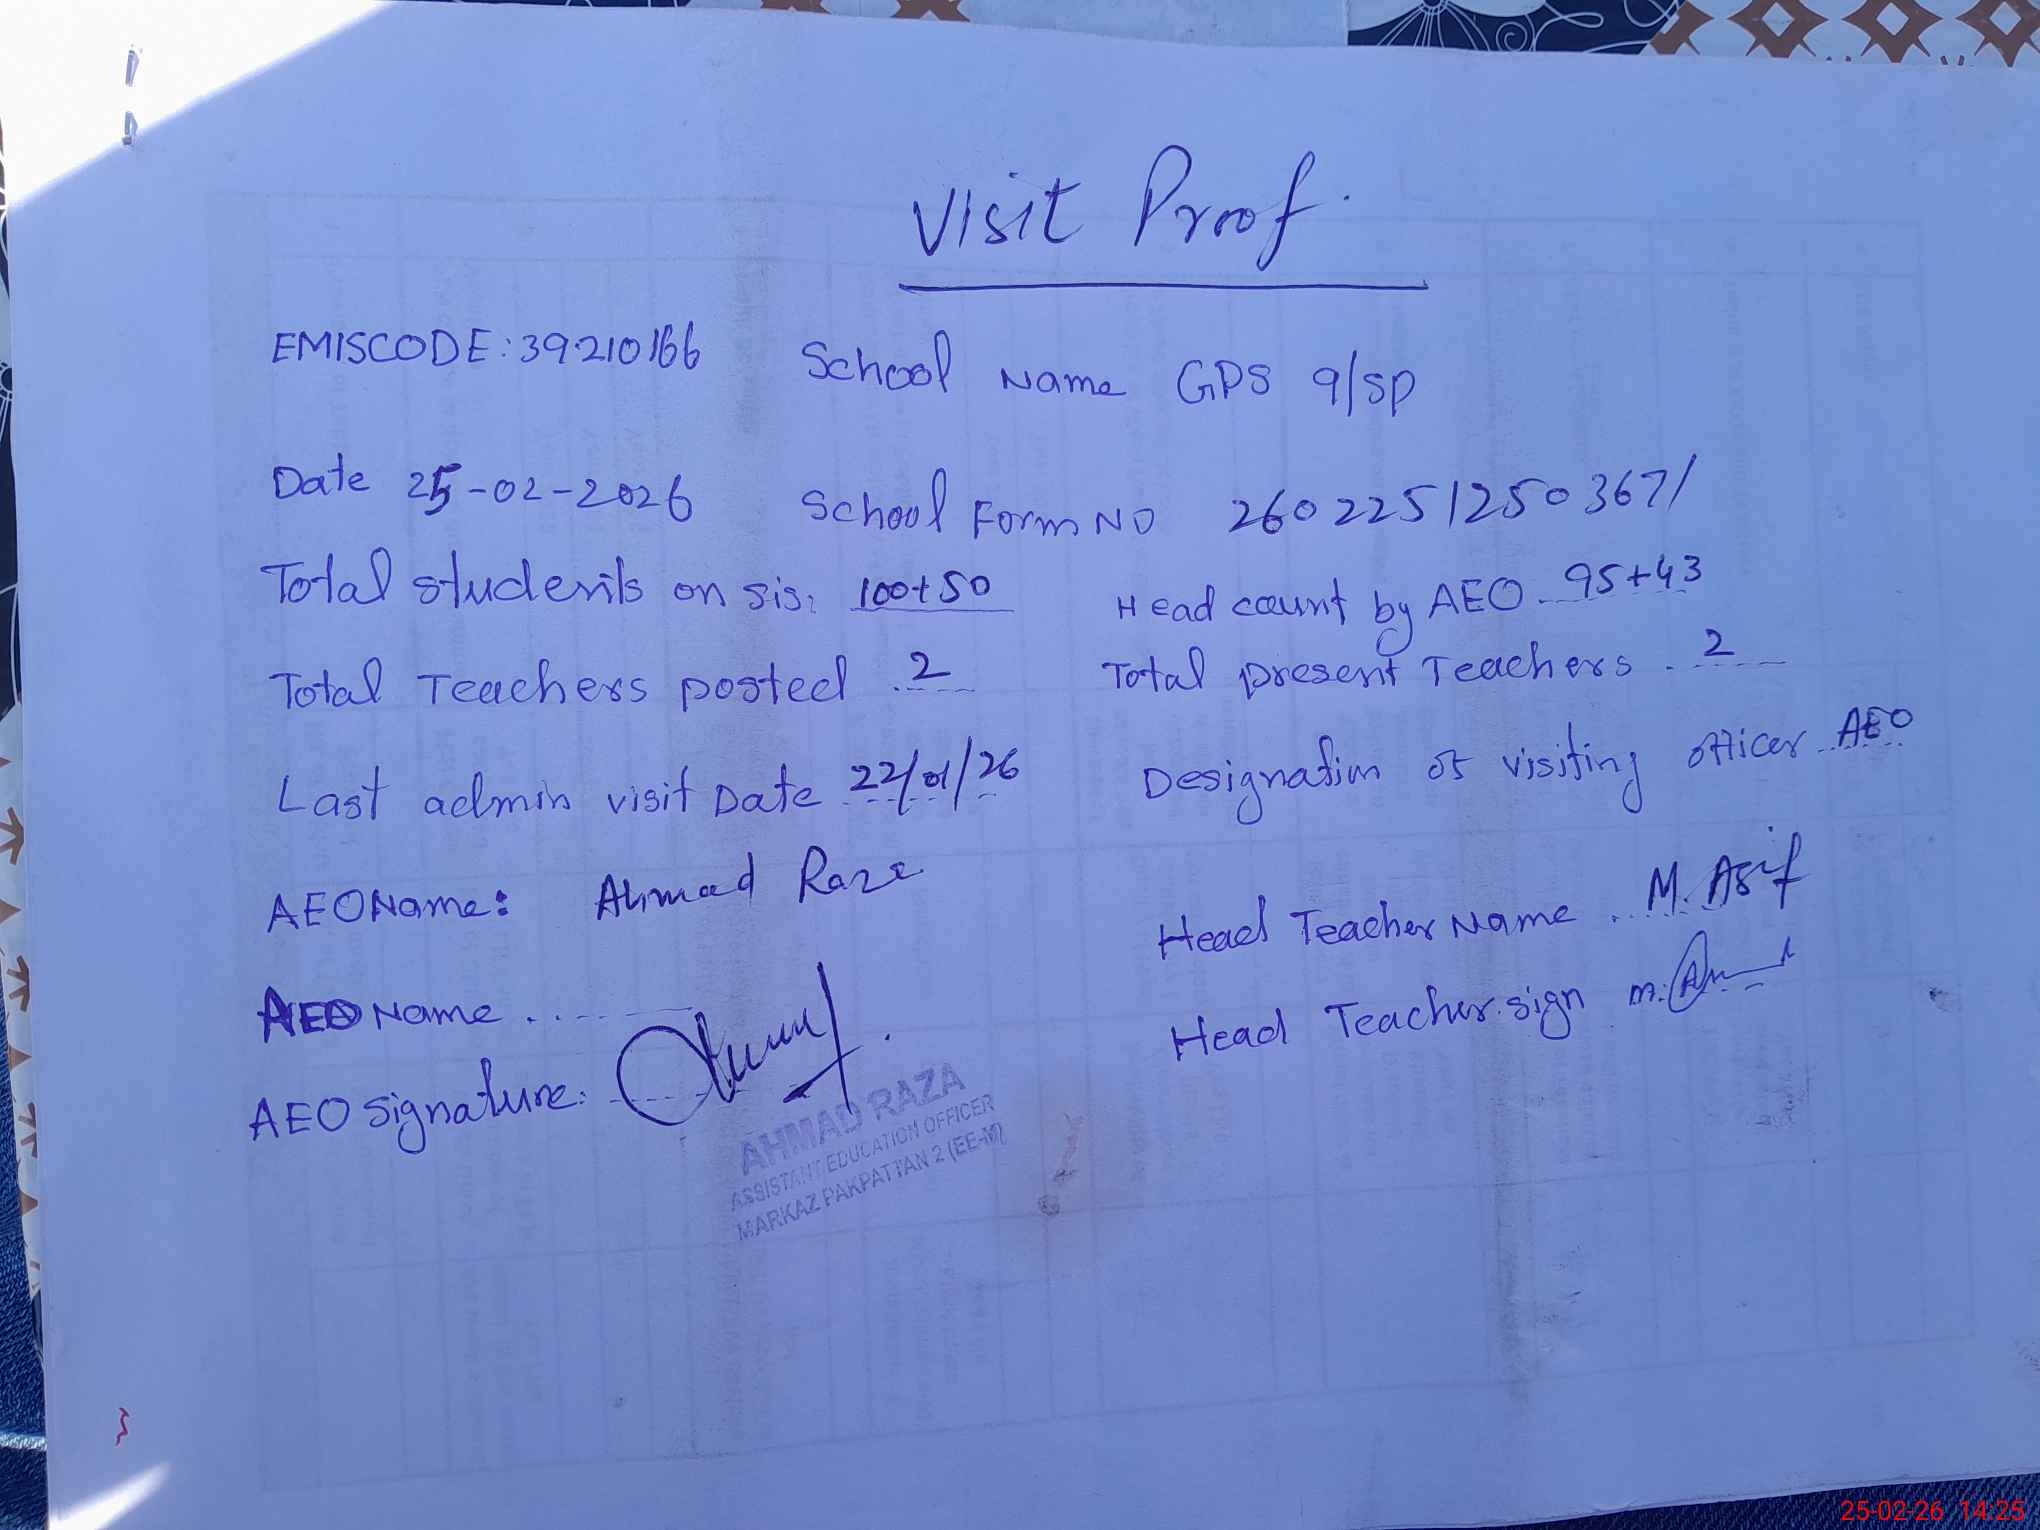 Visit Proof.
EMISCODE: 39210166 School Name GPS 9/SP
Date 25-02-2026 School Form NO 26022512503671
Total students on sis: 100+50 Head count by AEO 95+43
Total Teachers posted 2 Total present Teachers 2
Last admin visit Date 22/01/26 Designation of visiting officer AEO
AEO Name: Ahmad Raza Head Teacher Name M. Asif
AEO Name Head Teacher sign
AEO signature:
AHMAD RAZA
ASSISTANT EDUCATION OFFICER
MARKAZ PAKPATTAN 2 (EE-M)
25-02-26 14:25